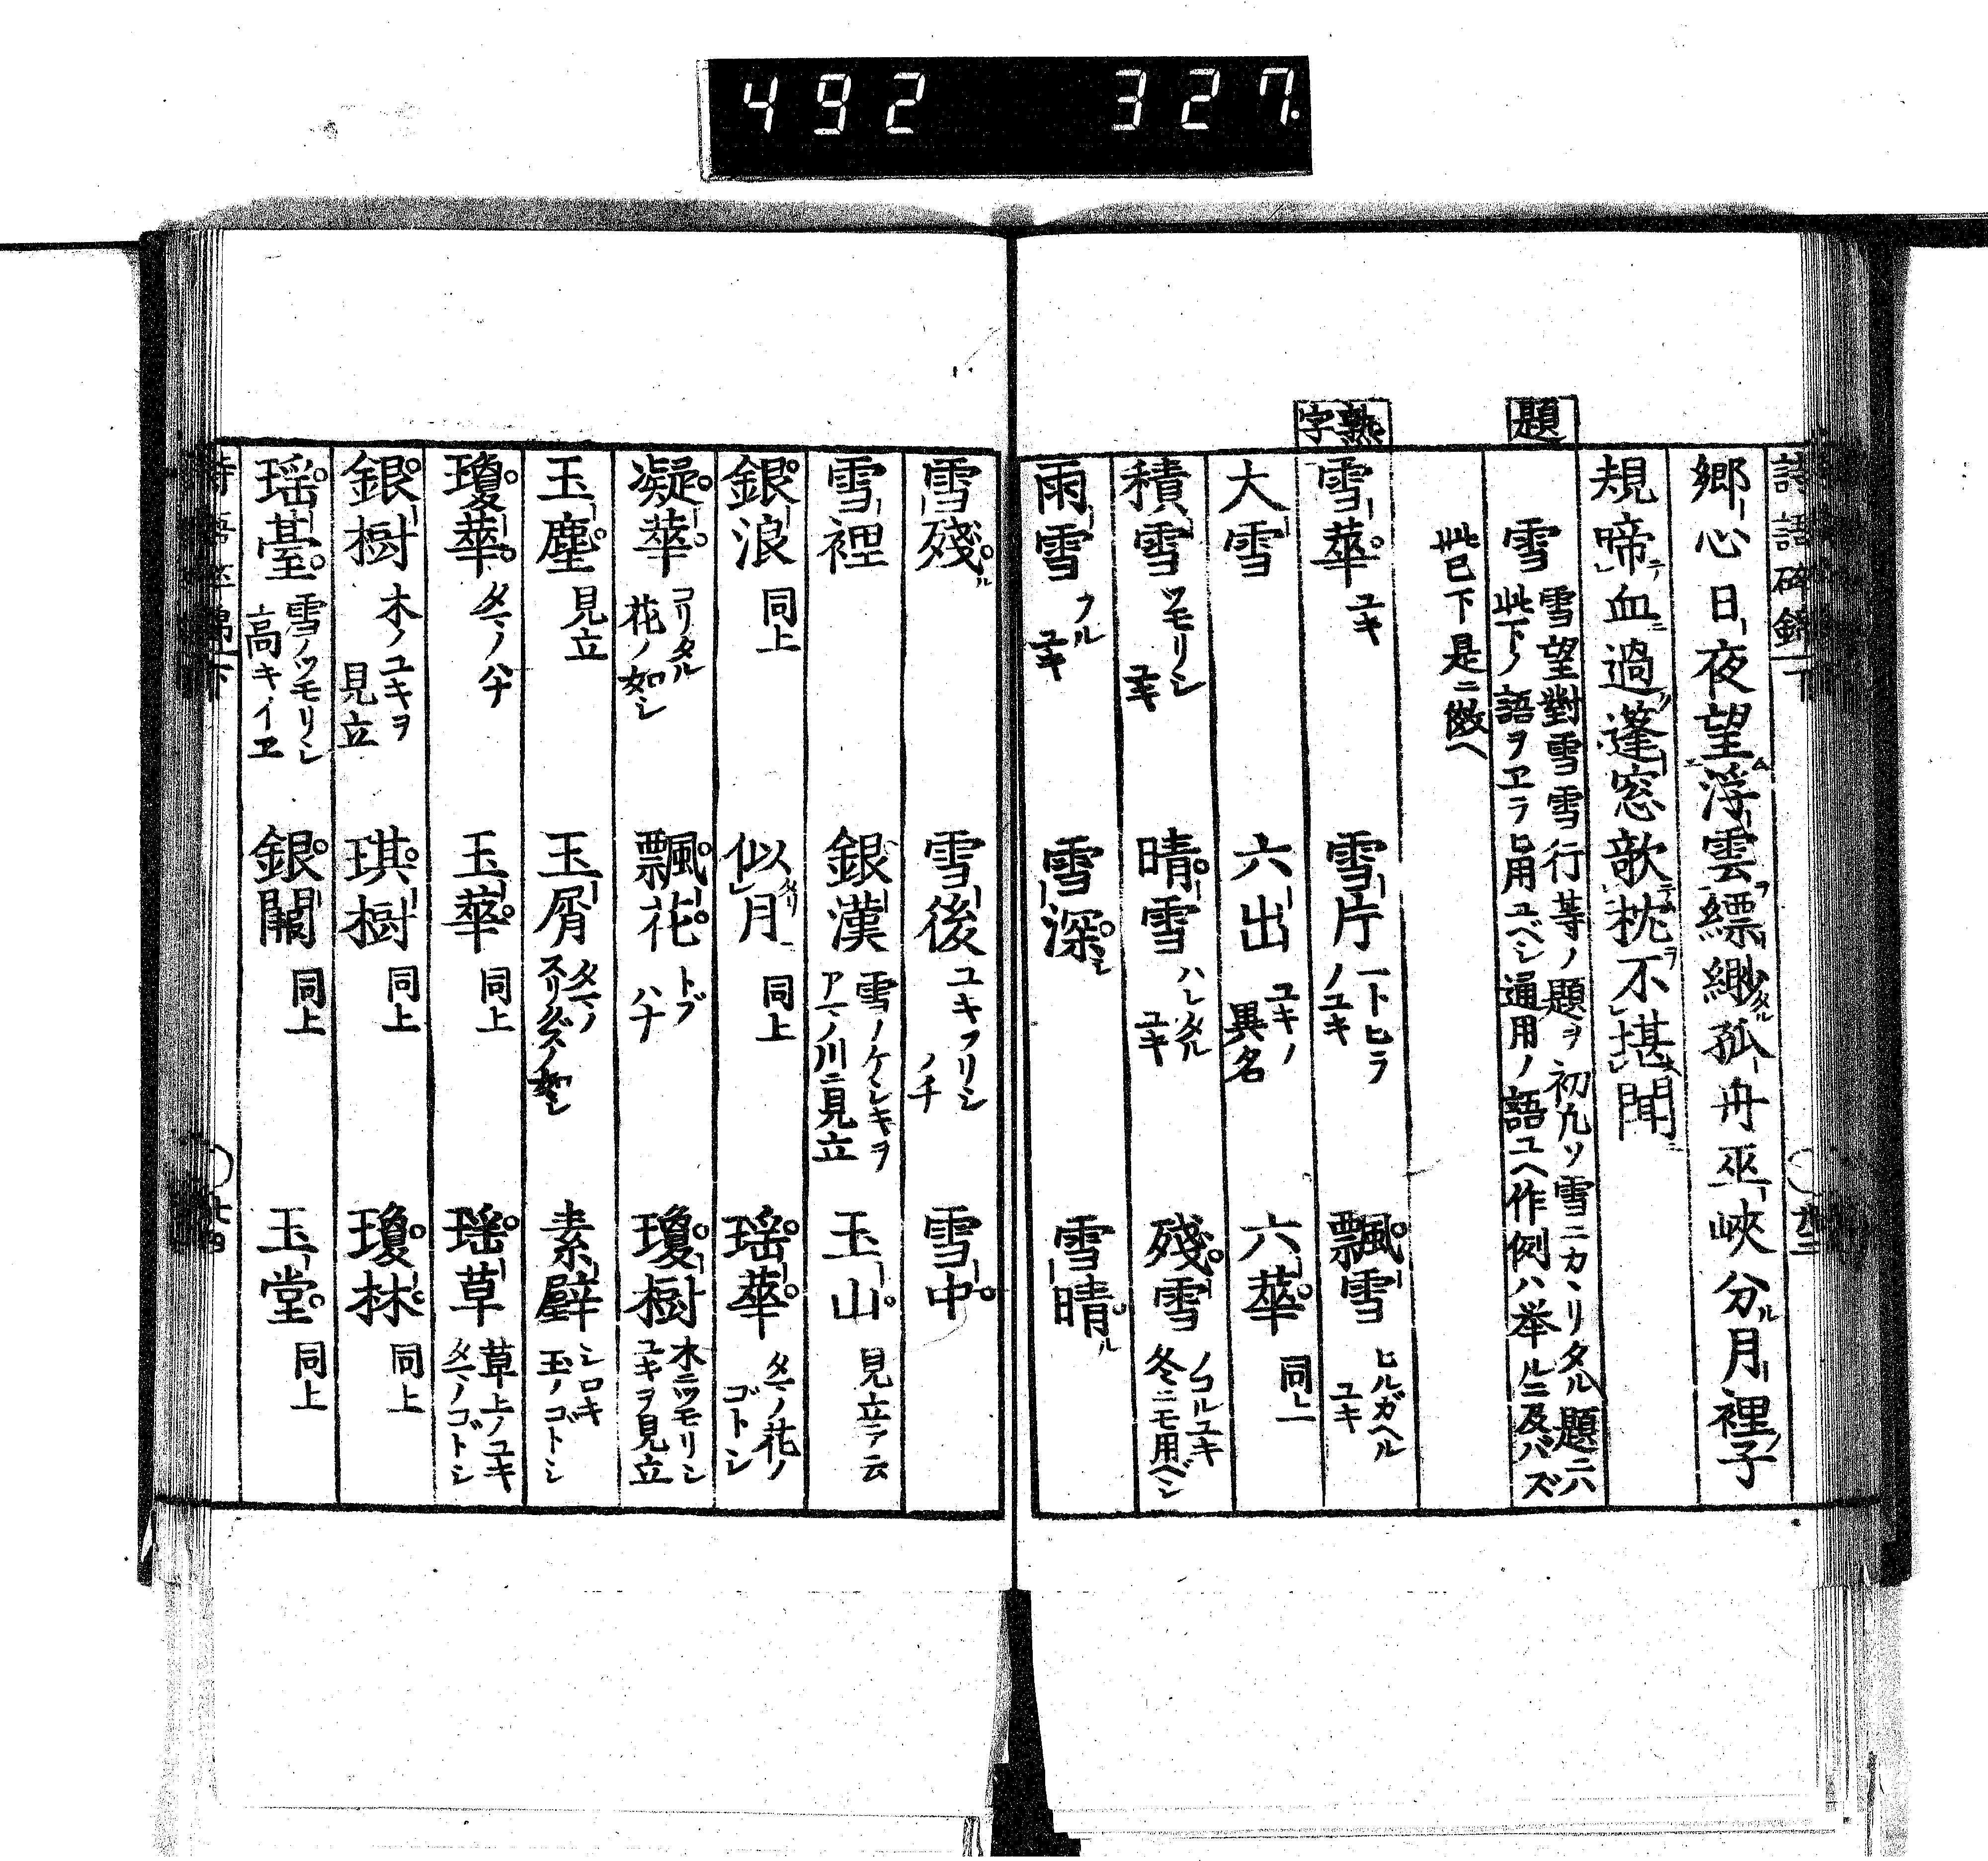 492 327.
詩語碎錦下
郷心日夜望浮雲縹緲孤舟巫峽分月裡子
規啼血過蓬窓欹枕不堪聞
題
雪 雪望對雪雪行等ノ題ヲ初凡ソ雪ニカヽリタル題ニハ
此下ノ語ヲヱラヒ用ユベシ通用ノ語ユヘ作例ハ挙ルニ及バズ
此已下是ニ倣ヘ
熟字
雪華 ユキ 雪片 一トヒラノユキ 飄雪 ヒルガヘルユキ
大雪 六出 ユキノ異名 六華 同上
積雪 ツモリシユキ 晴雪 ハレタルユキ 殘雪 ノコルユキ冬ニモ用ベシ
雨雪 フルユキ 雪深シ 雪晴ル
雪殘ル 雪後 ユキフリシノチ 雪中
雪裡 銀漢 雪ノケシキヲアマノ川ニ見立 玉山 見立テ云
銀浪 同上 似月 同上 瑶華 タマノ花ノゴトシ
凝華 コリタル花ノ如シ 飄花 トブハナ 瓊樹 木ニツモリシユキヲ見立
玉塵 見立 玉屑 タマノスリクズノ如シ 素壁 シロキ玉ノゴトシ
瓊華 タマノハナ 玉華 同上 瑶草 草上ノユキタマノゴトシ
銀樹 木ノユキヲ見立 琪樹 同上 瓊林 同上
瑶臺 雪ノツモリシ高キイヱ 銀闕 同上 玉堂 同上